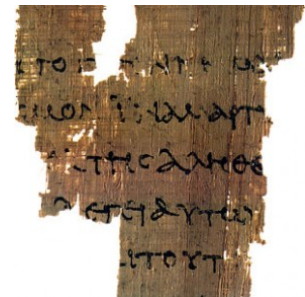 ΤΟ
ΜΟΝ ΪΝΑ ΜΑΡΤ
ΤΗϹ ΑΛΗΘΕ
ΛΕΓΕΙ ΑΥΤΩ
Ι ΤΟΥΤ